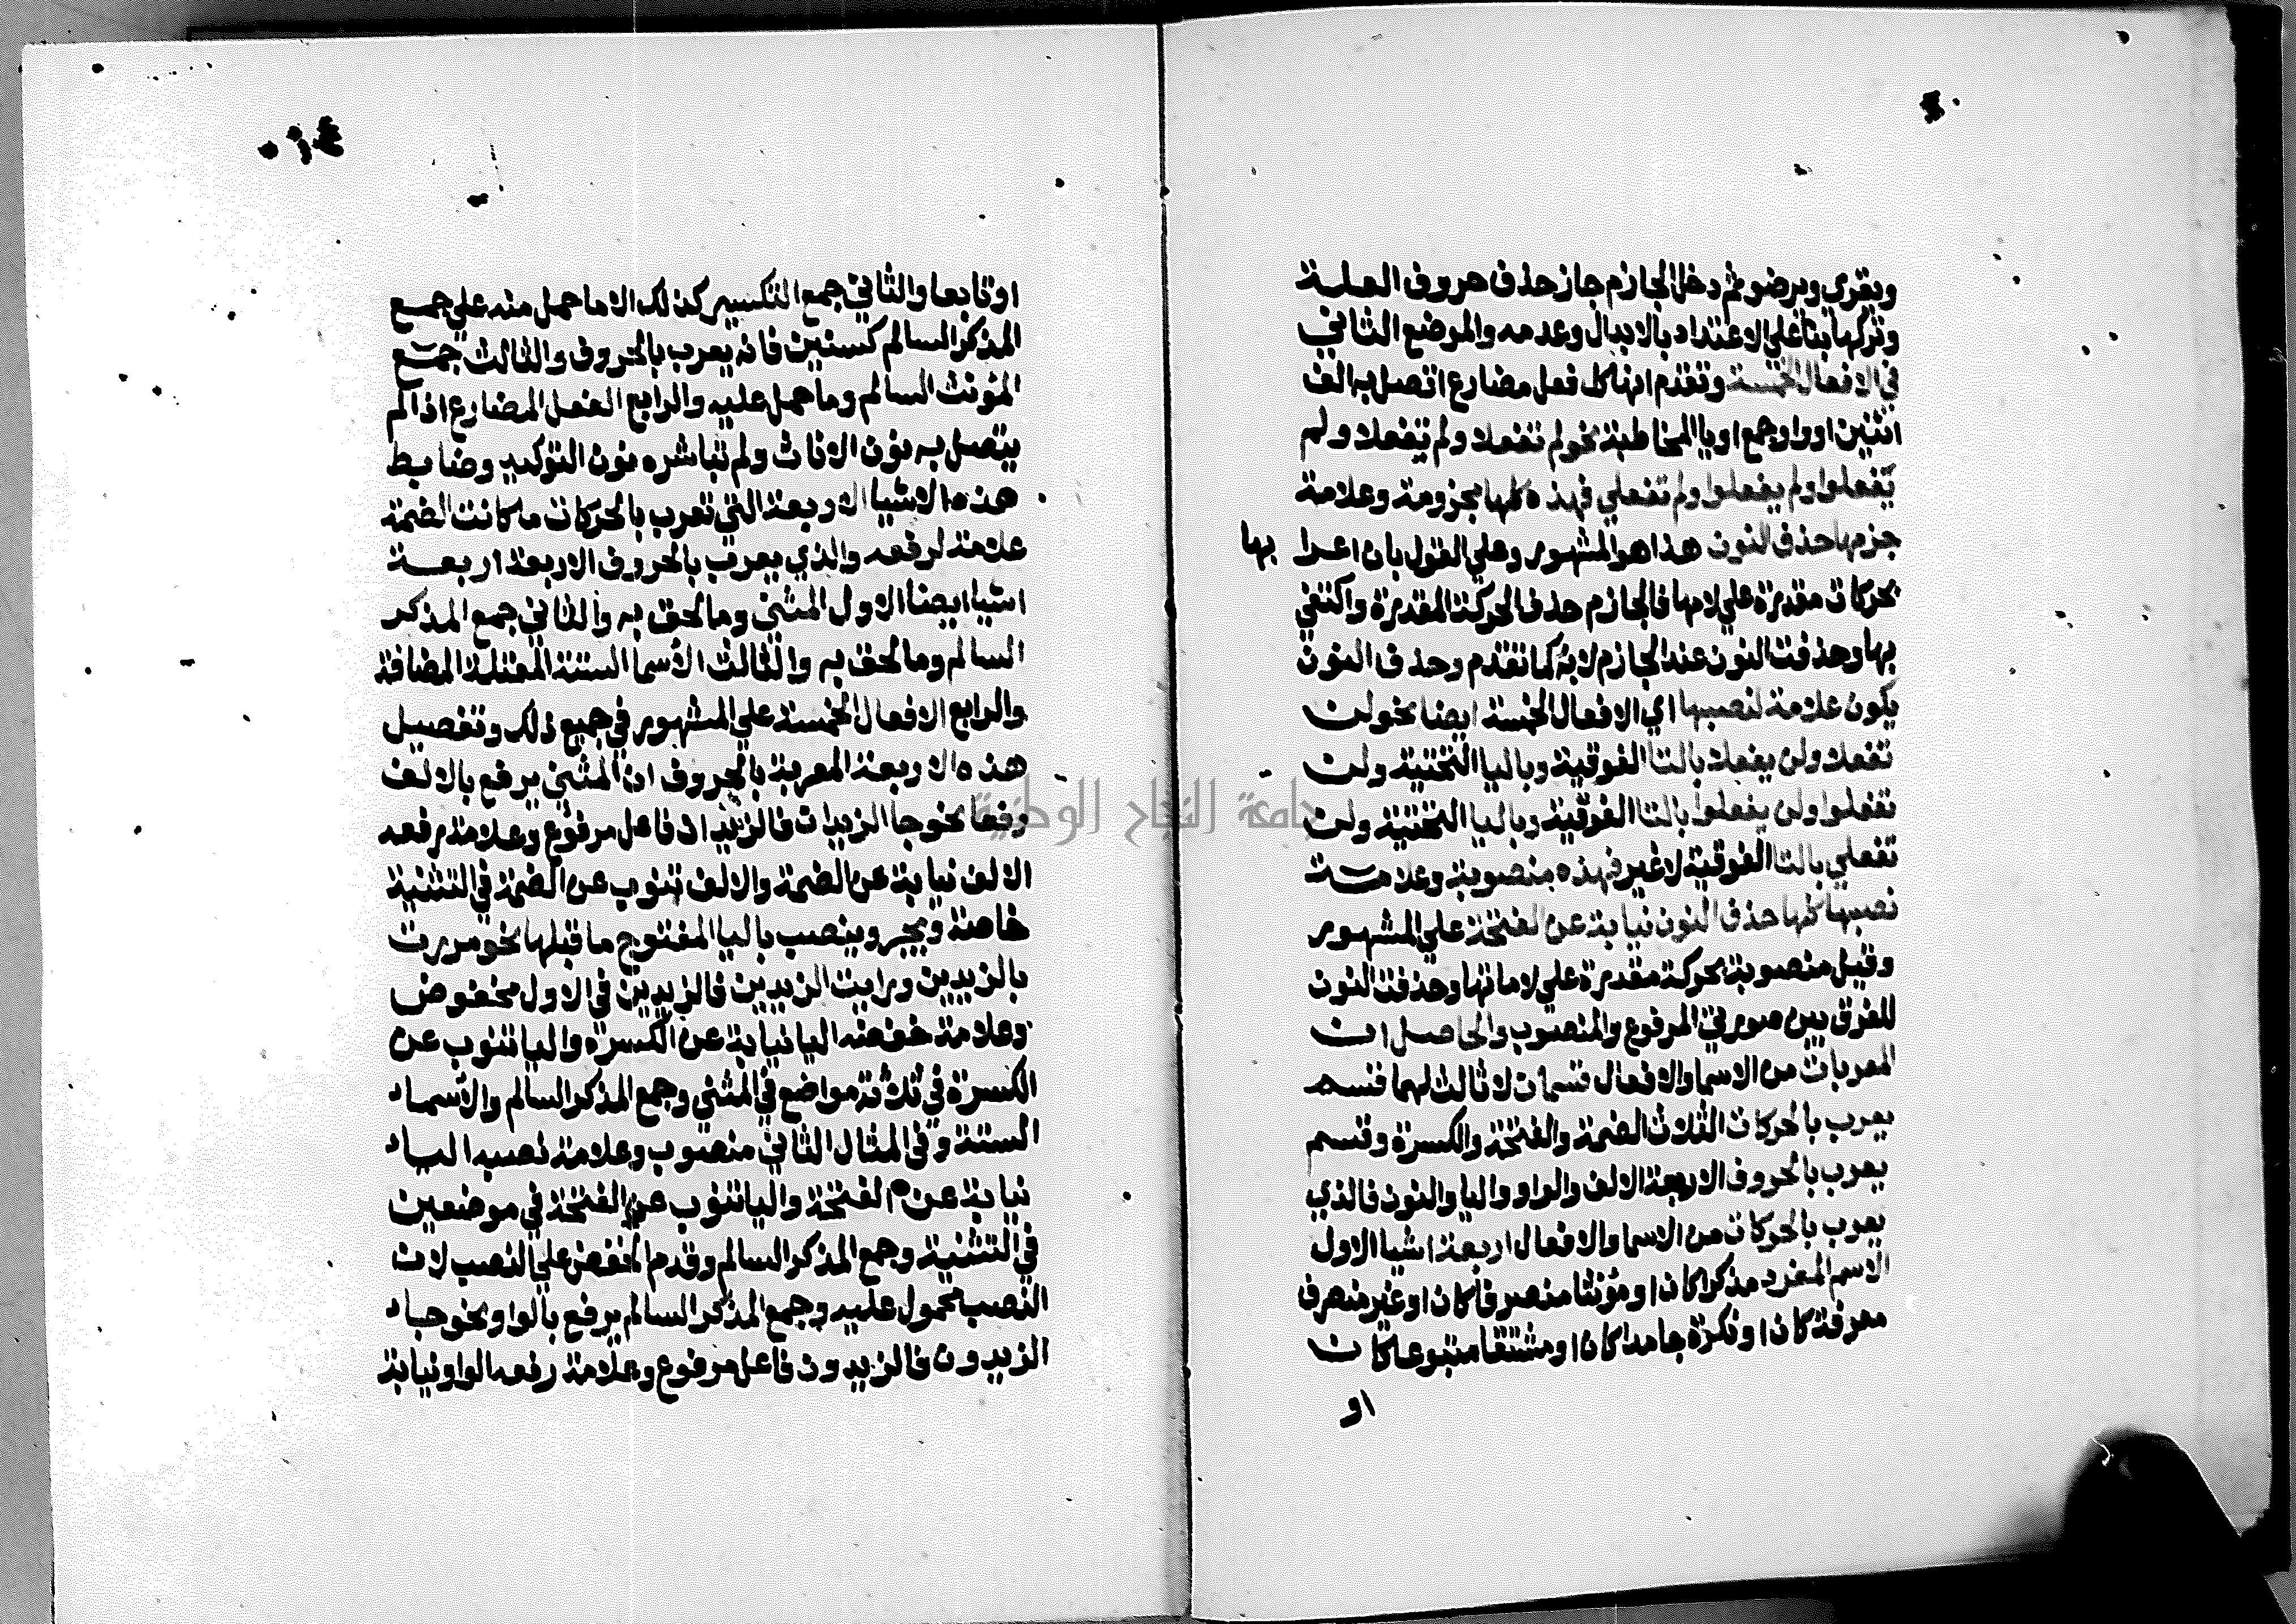 ويقري ويرضو ثم دخل الجازم جاز حذف حروف العلة
وتركها بنا علي الاعتداد بالابدال وعدمه والموضع الثاني
في الافعال الخمسة وتقدم انها كل فعل مضارع اتصل به الف
اثنين او واو جمع او يا المخاطبة نحو لم تفعلا ولم يفعلا ولم
تفعلوا ولم يفعلوا ولم تفعلي فهذه كلها مجزومة وعلامة
جزمها حذف النون هذا هو المشهور وعلي القول بان اعرا بها
بحركات مقدرة علي لامها فالجازم حذف الحركة المقدرة واكتفي
بها وحذفت النون عند الجازم لا به كما تقدم وحذف النون
يكون علامة لنصبها اي الافعال الخمسة ايضا نحو لن
تفعلا ولن يفعلا بالتا الفوقية وباليا التحتية ولن
تفعلوا ولن يفعلوا بالتا الفوقية وباليا التحتية ولن
تفعلي بالتا الفوقية لا غير فهذه منصوبة وعلامة
نصبها كلها حذف النون نيابة عن الفتحة علي المشهور
وقيل منصوبة بحركة مقدرة علي لاماتها وحذفت النون
للفرق بين صورتي المرفوع والمنصوب والحاصل ان
المعربات من الاسما والافعال قسمان لا ثالث لهما قسم
يعرب بالحركات الثلاث الضمة والفتحة والكسرة وقسم
يعرب بالحروف الاربعة الالف والواو واليا والنون فالذي
يعرب بالحركات من الاسما والافعال اربعة اشيا الاول
الاسم المفرد مذكرا كان او مؤنثا منصرفا كان او غير منصرف
معرفة كان او نكرة جامدا كان او مشتقا متبوعا كان
او
او تابعا والثاني جمع التكسير كذلك الا ما حمل منه علي جمع
المذكر السالم كسنين فانه يعرب بالحروف والثالث جمع
المؤنث السالم وما حمل عليه والرابع الفعل المضارع اذا لم
يتصل به نون الاناث ولم تباشره نون التوكيد وضابط
هذه الاشيا الاربعة التي تعرب بالحركات ما كانت الضمة
علامة لرفعه والذي يعرب بالحروف الاربعة اربعة
اشيا ايضا الاول المثني وما لحق به والثاني جمع المذكر
السالم وما لحق به والثالث الأسما الستة المعتلة المضافة
والرابع الافعال الخمسة علي المشهور في جميع ذلك وتفصيل
هذه الاربعة المعربة بالحروف ان المثني يرفع بالالف
رفعا نحو جا الزيدان فالزيدان فاعل مرفوع وعلامة رفعه
الالف نيابة عن الضمة والالف تنوب عن الضمة في التثنية
خاصة ويجر وينصب باليا المفتوح ما قبلها نحو مررت
بالزيدين ورايت الزيدين فالزيدين في الاول مخفوض
وعلامة خفضه اليا نيابة عن الكسرة واليا تنوب عن
الكسرة في ثلاثة مواضع في المثني وجمع المذكر السالم والاسماء
الستة وفي المثال الثاني منصوب وعلامة نصبه الياء
نيابة عن الفتحة واليا تنوب عن الفتحة في موضعين
في التثنية وجمع المذكر السالم وقدم الخفض علي النصب لان
النصب محمول عليه وجمع المذكر السالم يرفع بالواو نحو جاء
الزيدون فالزيدون فاعل مرفوع وعلامة رفعه الواو نيابة
جامعة النجاح الوطنية